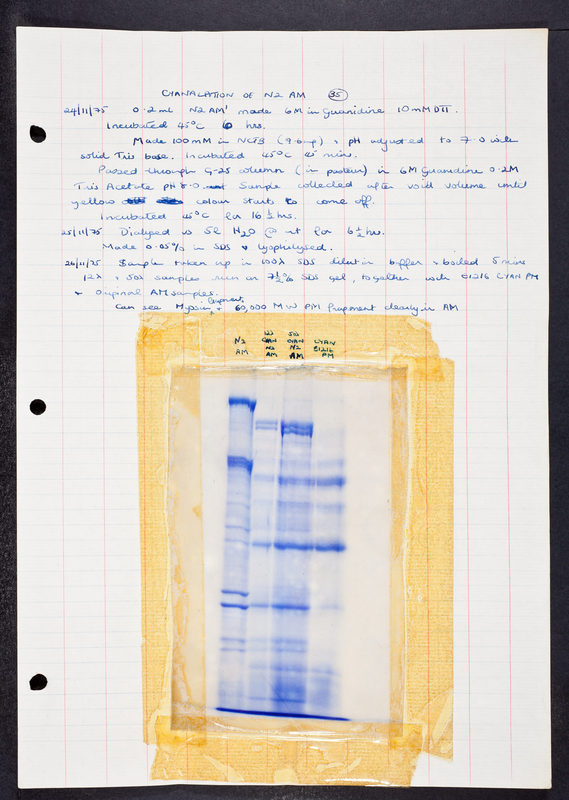 CYANALATION OF N2 AM 35
24/11/75 0.2ml N2 AM' made 6M in Guanidine 10mM DTT.
Incubated 45°C 6 hrs.
Made 100mM in NCTB (90mg) + pH adjusted to 7.0 with
solid Tris base. Incubated 45°C mins.
Passed through G-25 column (in protein) in 6M Guanidine 0.2M
Tris Acetate pH 8.0 Sample collected after void volume until
yellow colour starts to come off.
Incubated 45°C for 16½ hrs.
25/11/75 Dialysed vs 5l H2O @ rt for 6½ hrs.
Made 0.05% in SDS + lyophilysed.
26/11/75 Sample taken up in 100λ SDS dilution buffer + boiled 5 mins
12λ + 50λ samples run on 7½% SDS gel, together with E1216 CYAN PM
+ original AM samples.
Can see Myosin fragments + 60,000 MW PM fragment clearly in AM
N2 AM
12λ CYAN N2 AM
50λ CYAN N2 AM
CYAN E1216 PM